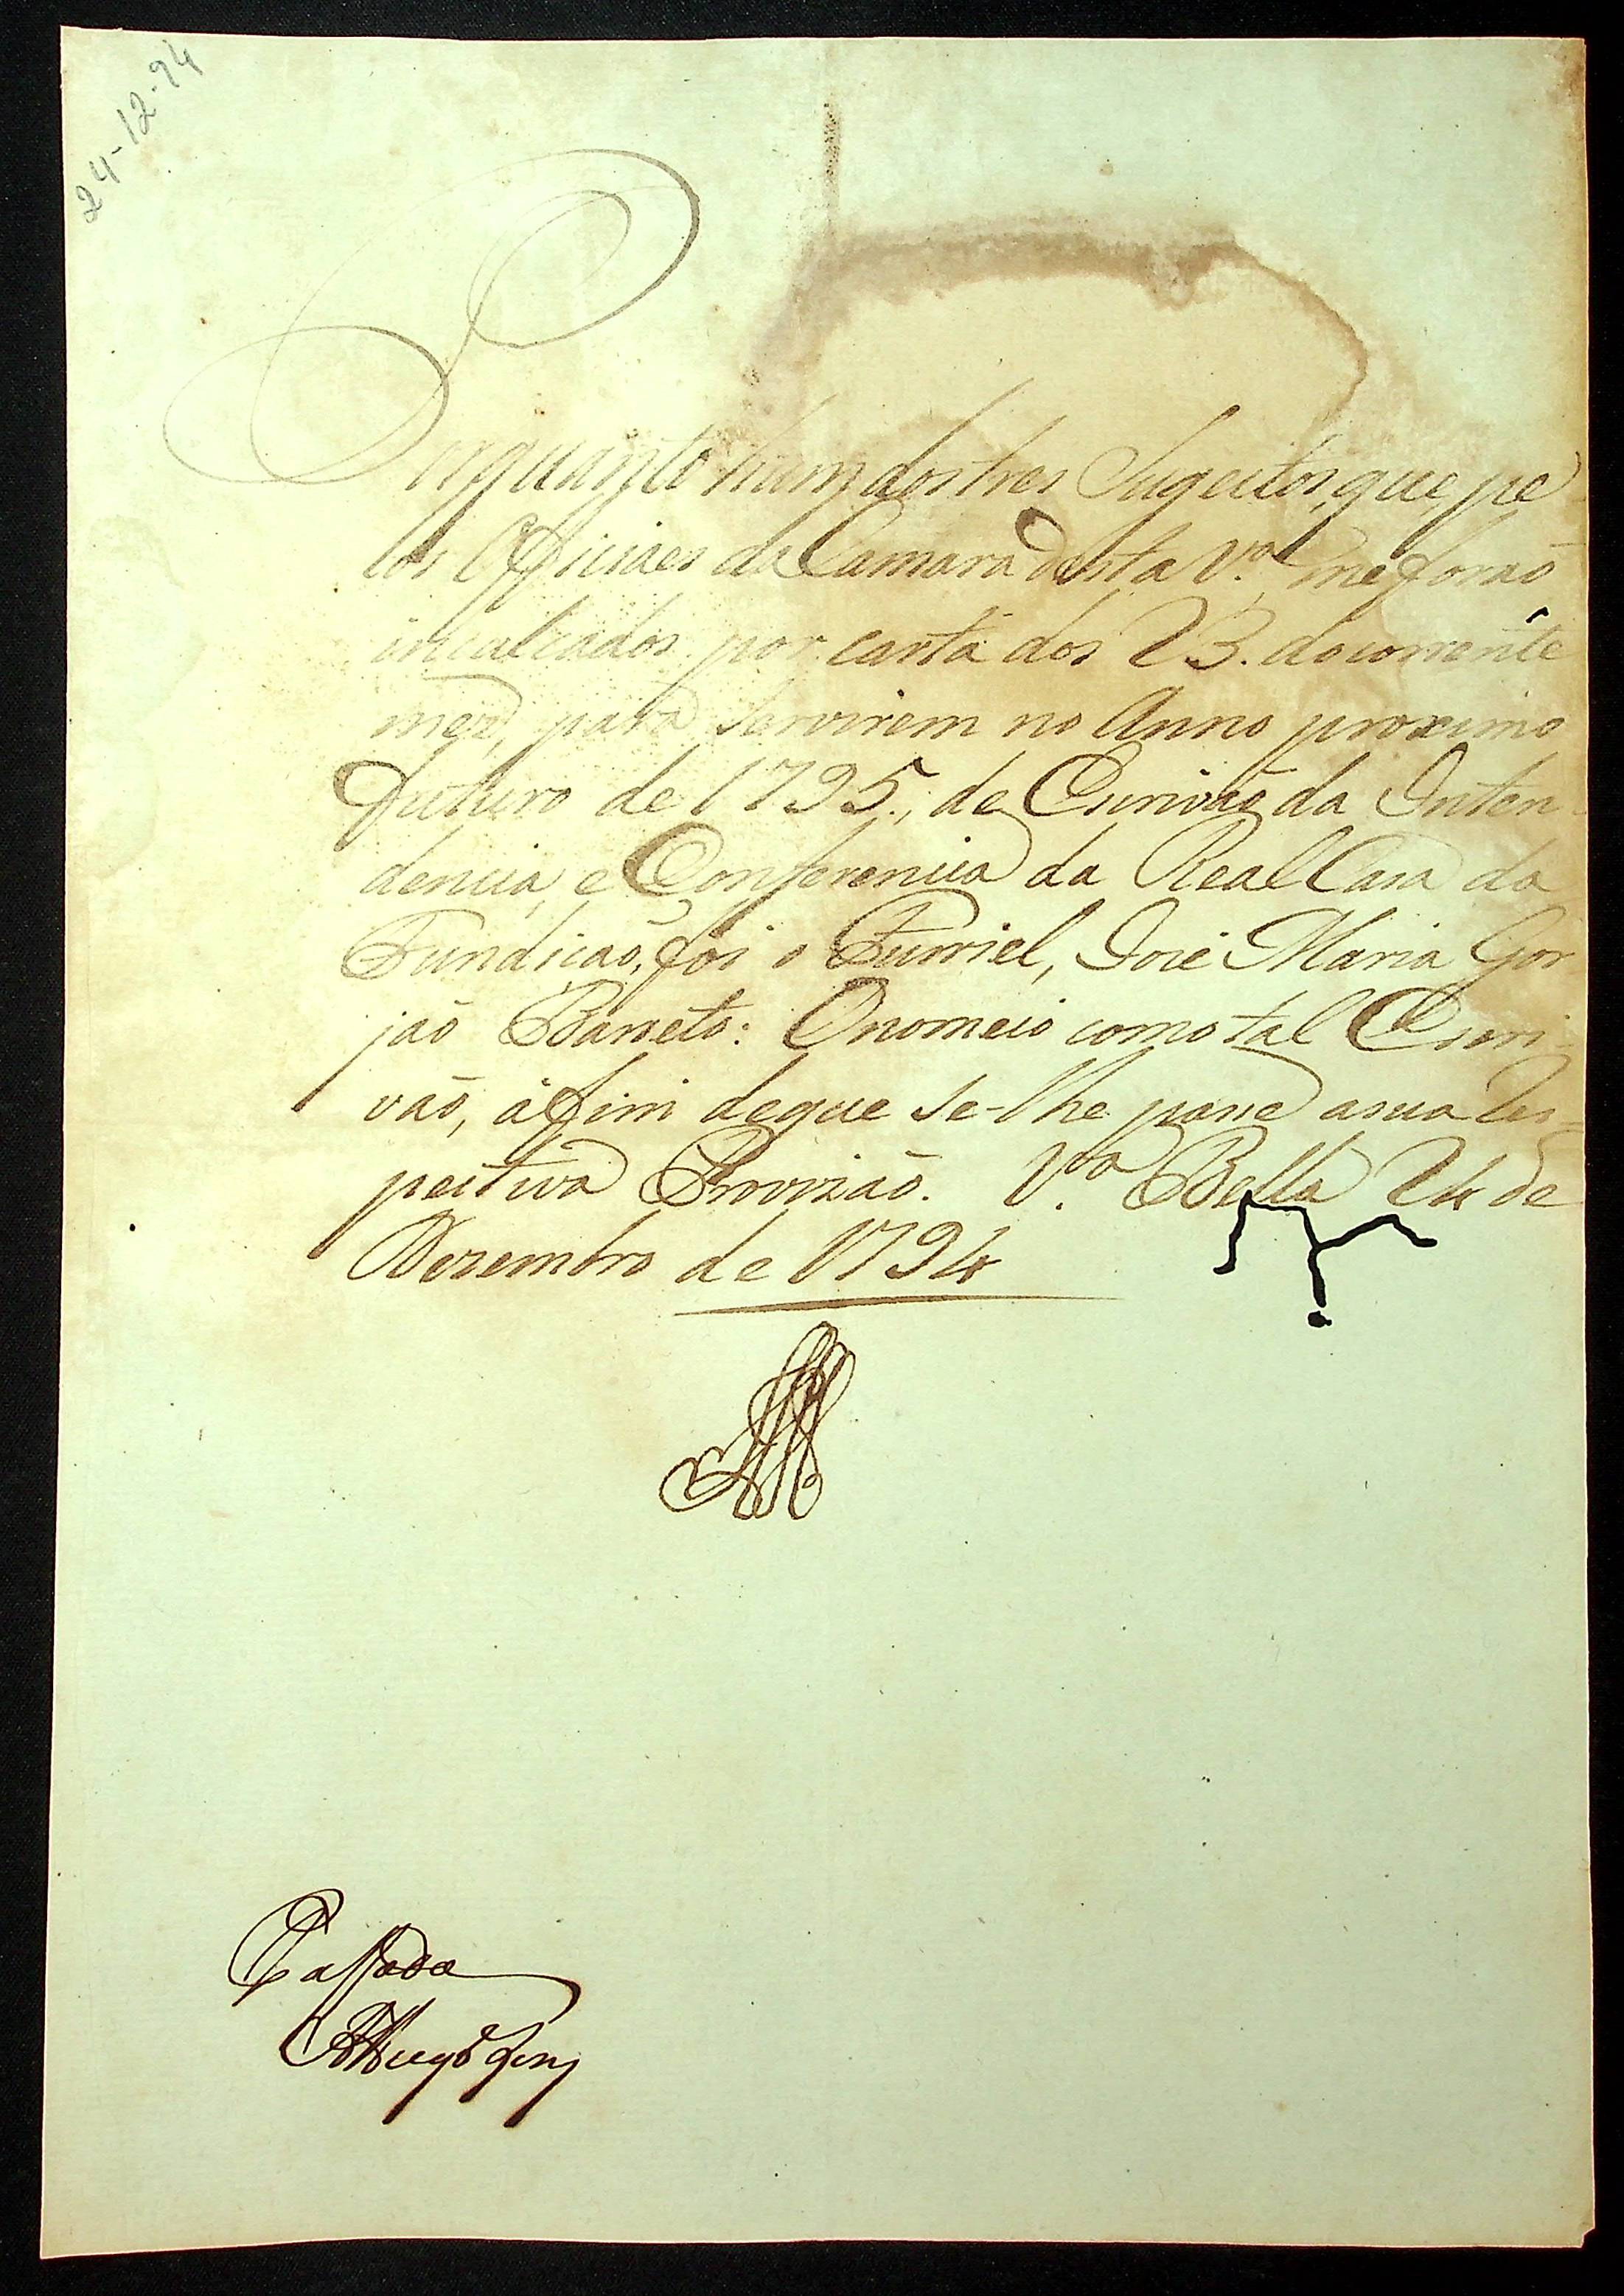 24-12-94
Porquanto hum dos tres Sugeitos, que, pe
los Officiaes da Camara desta V.ª me forão
inculcados por carta dos 23. do corrente
mez, para servirem no Anno proximo
futuro de 1795., de Escrivão da Inten
dencia, e Conferencia da Real Casa da
Fundicaõ, foi o Furriel, José Maria Gor
jaõ Barreto: O nomeio como tal Escri-
vaõ, à fim de que se-lhe passe a sua Res=
pectiva Provizaõ. V.ª Bella 24 de
Dezembro de 1794
Passada